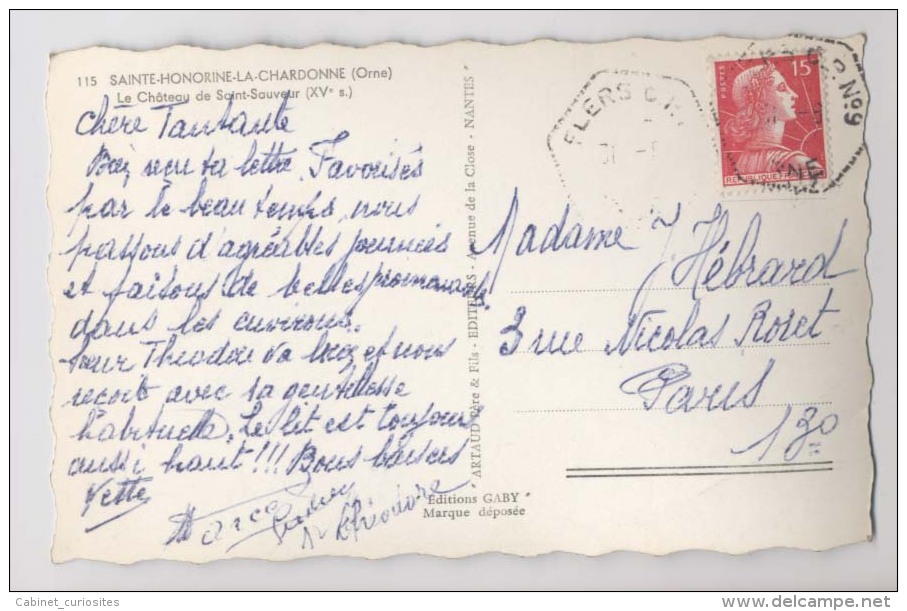 115 SAINTE-HONORINE-LA-CHARDONNE (Orne)
Le Château de Saint-Sauveur (XVe s.)
Chère Tantante
Bien reçu ta lettre. Favorisés
par le beau temps, nous
passons d'agréables journées
et faisons de belles promenades
dans les environs.
Sœur Théodore va bien et nous
reçoit avec sa gentillesse
habituelle. Le lit est toujours
aussi haut!!! Bons baisers
Yette
Sr Théodore
"ARTAUD Père & Fils - EDITEURS - Avenue de la Close - NANTES
Editions GABY"
Marque déposée
FLERS C.P.
C.P. No.9
POSTES
15
REPUBLIQUE FRANÇAISE
Madame J Hébrard
3 rue Nicolas Roret
Paris
13o
Cabinet_curiosites